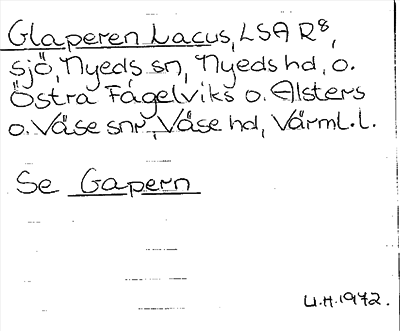 Glaperen Lacus, LSA R⁸,
sjö, Nyeds sn, Nyeds hd, o.
Östra Fågelviks o. Alsters
o. Väse snr, Väse hd, Värml. l.
Se Gapern
U.H. 1972.